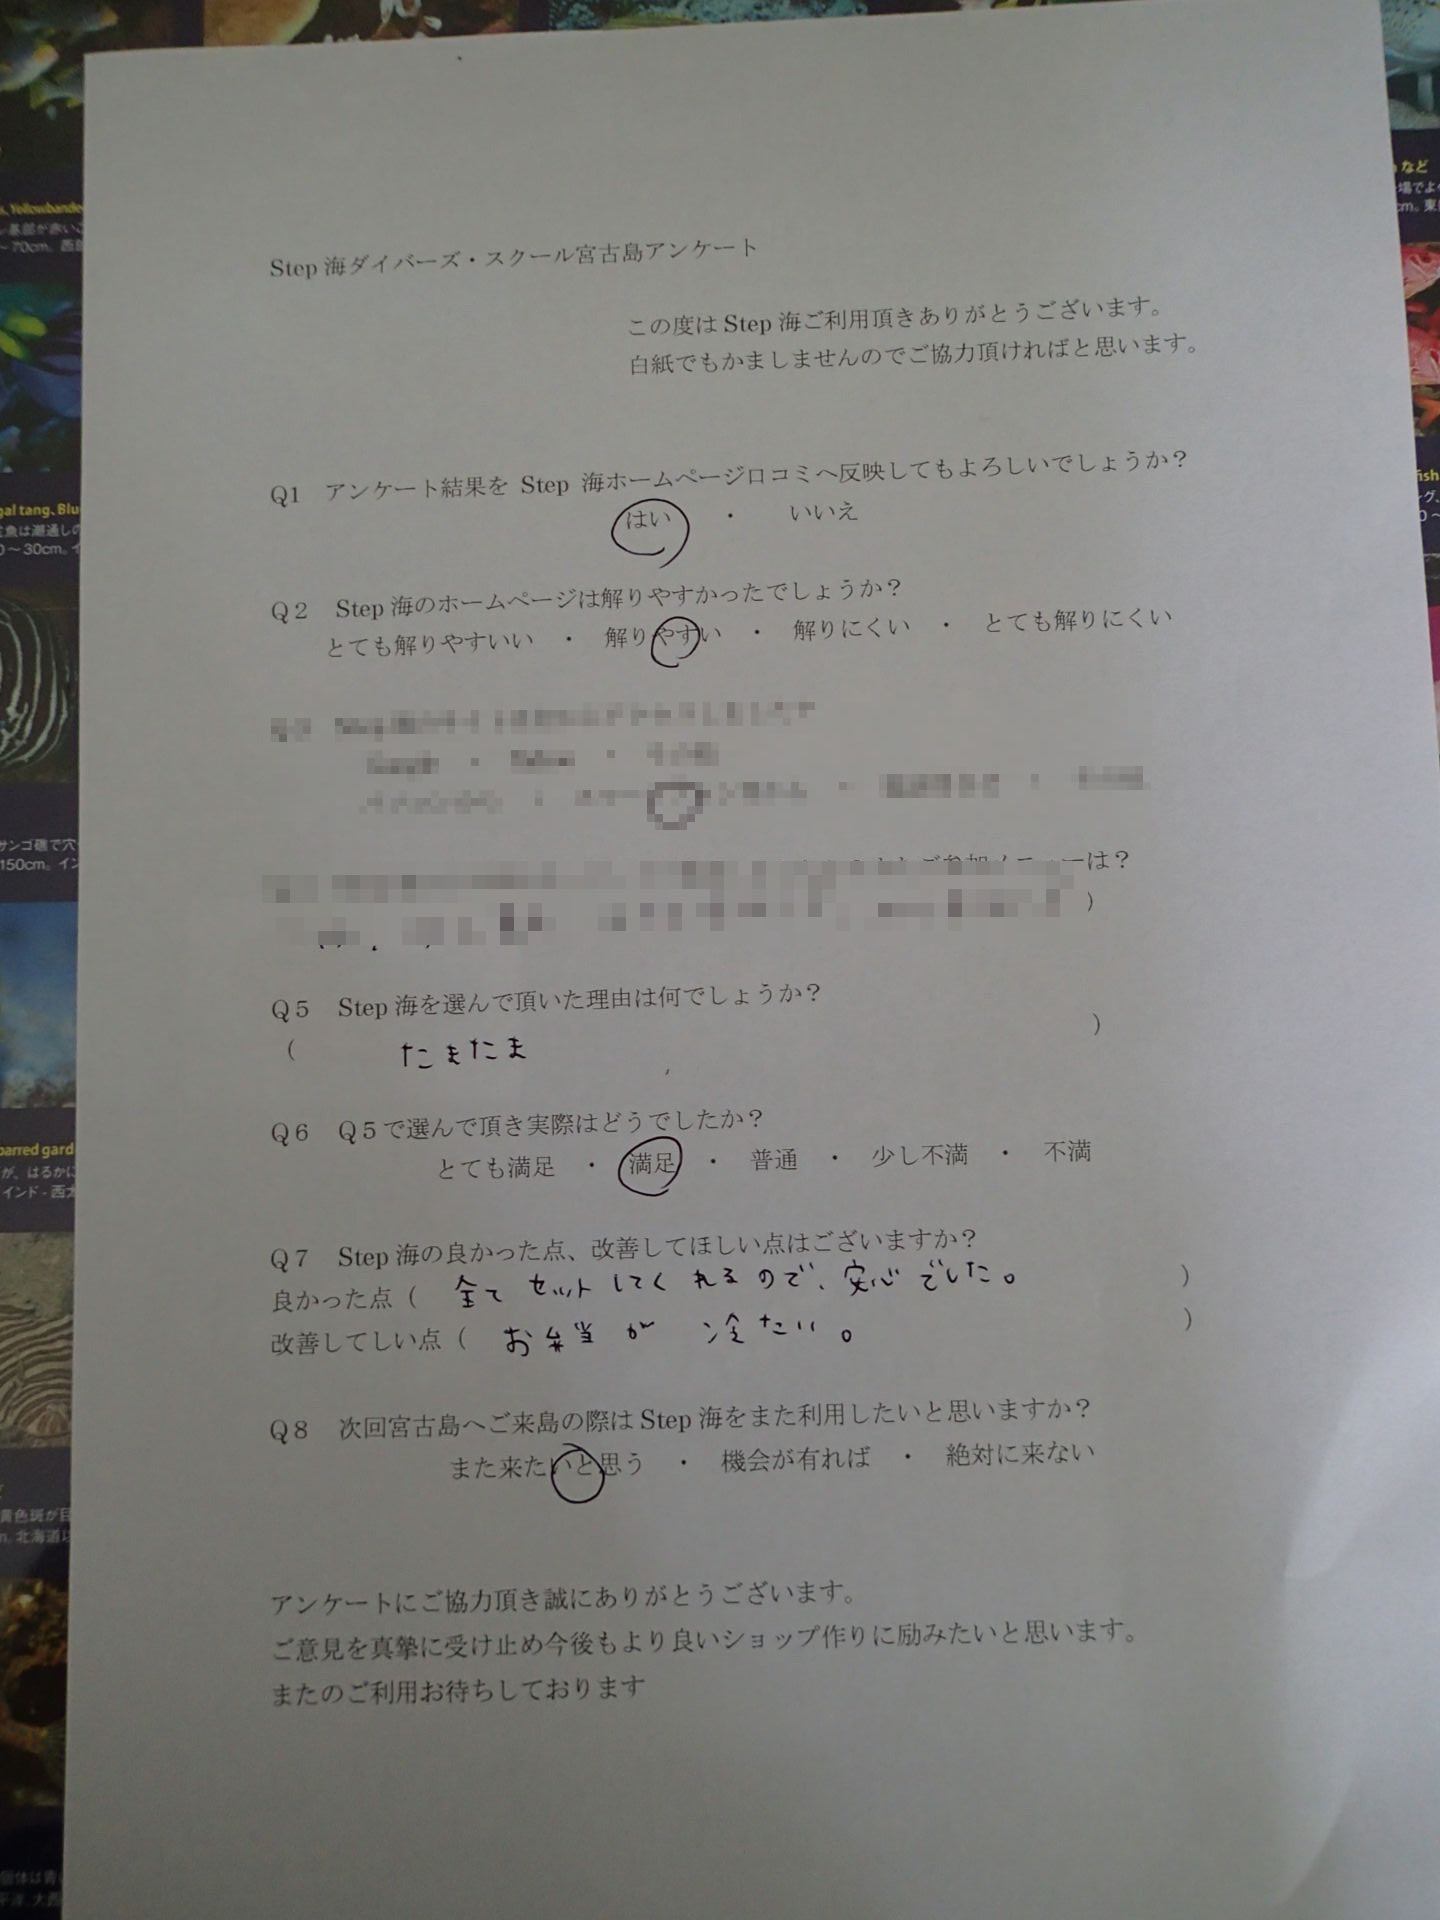 Step 海ダイバーズ・スクール宮古島アンケート
この度は Step 海ご利用頂きありがとうございます。
白紙でもかましませんのでご協力頂ければと思います。
Q1 アンケート結果を Step 海ホームページ口コミへ反映してもよろしいでしょうか？
はい ・ いいえ
Q２ Step 海のホームページは解りやすかったでしょうか？
とても解りやすいい ・ 解りやすい ・ 解りにくい ・ とても解りにくい
ご参加メニューは？
）
Q５ Step 海を選んで頂いた理由は何でしょうか？
（ たまたま ）
Q６ Q５で選んで頂き実際はどうでしたか？
とても満足 ・ 満足 ・ 普通 ・ 少し不満 ・ 不満
Q７ Step 海の良かった点、改善してほしい点はございますか？
良かった点（ 全てセットしてくれるので、安心でした。 ）
改善してしい点（ お弁当が冷たい。 ）
Q８ 次回宮古島へご来島の際は Step 海をまた利用したいと思いますか？
また来たいと思う ・ 機会が有れば ・ 絶対に来ない
アンケートにご協力頂き誠にありがとうございます。
ご意見を真摯に受け止め今後もより良いショップ作りに励みたいと思います。
またのご利用お待ちしております